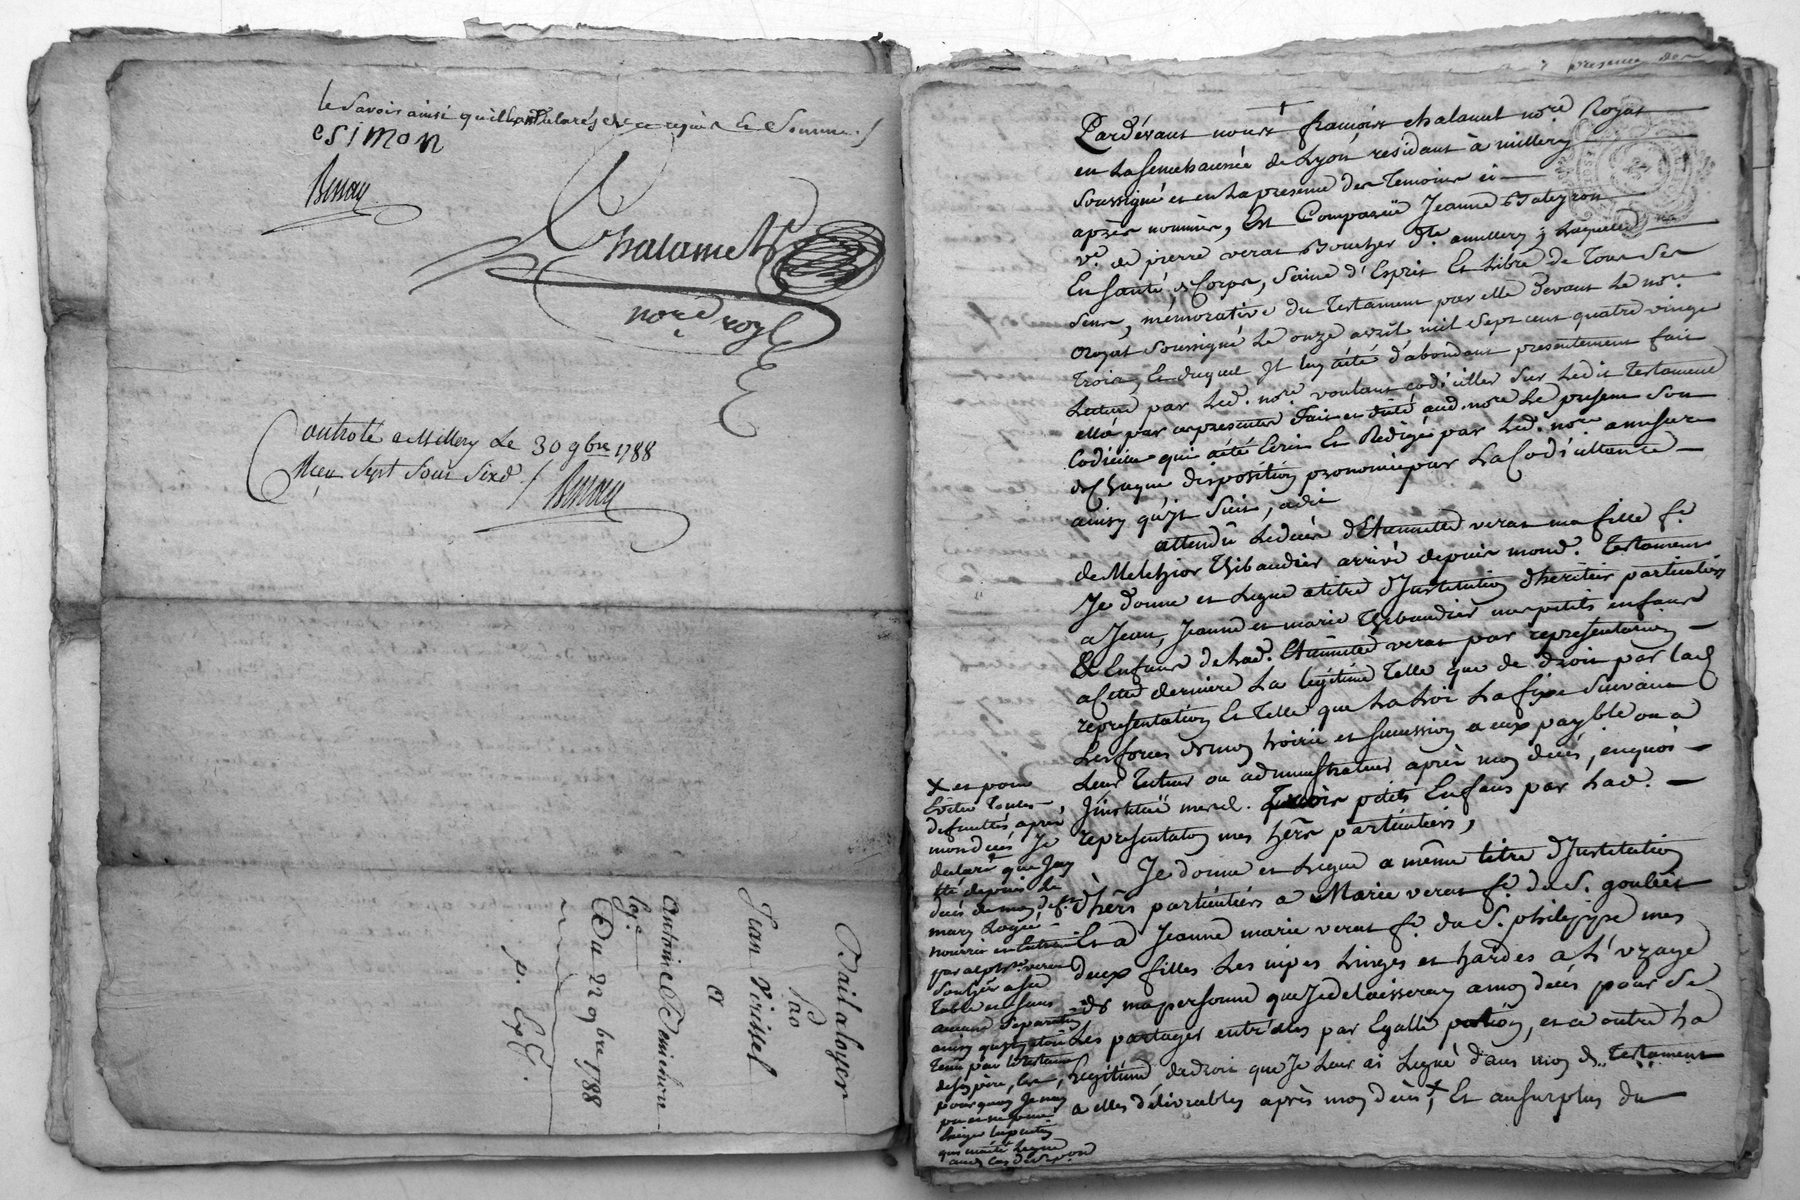 le savoir ainsi qu'ils ont déclarés de ce requis et sommés /
esimon
Benay
Chalamet
nore. royl
Controlé a Millery Le 30 9bre 1788
Reçu Sept Sous Six d. /
Benay
Bail a loyer
Jean Voissel
et
Antoine
Du 22 9bre 1788
p. Exp.
presence des
Pardevant nous françois chalamet nore. Royal
en La senechaussée de Lyon, residant à millery
soussigné et en La presence des Temoins ci
après nommés, Est Comparüe Jeanne
ve. de pierre verat Boucher dt. amillery; Laquelle
En santé de Corps, saine d'Esprit Et Libre de Tous ses
sens, mémorative du Testament par elle devant Le nore.
Royal soussigné Le onze avril mil sept cent quatre vingt
Trois, Et duquel Jl luy aété d'abondant presentement fait
Lecture par Led. nore. voulant codiciller sur Ledit Testament
elle par ces presentes Fait et dicté aud. nore. Le present son
Codicille qui aété Ecrit Et Redigé par Led. nore. amesure
de Chaque disposition prononcée par La Codicillante
ainsy qu'jl suit, a dit
attendû Ledécès d'Etiennette verat ma fille fe.
de Melchior Thibaudier arrivé depuis mond. Testament
Je donne et Legue atitre d'Jnstitution d'heritier particulier
a Jean, Jeanne et marie Thibaudier mes petits enfans
& Enfans de Lad. Etiennette verat par representation
a Cette derniere La legitime Telle que de droit par lad.
representation Et Telle que La Loi La fixe suivant
Les forces de mon hoirie et succession a eux payable ou a
Leur Tuteur ou administrateur après mon décès, en quoi
J'institue mesd. Trois petits Enfans par Lad.
representation mes hers. particuliers,
Je donne et Legue a même titre d'Jnstitution
d'hers. particuliers a Marie verat fe. du S. goubet
Et a Jeanne marie verat fe. du S. philippe mes
deux filles Les nipes Linges et hardes a L'uzage
de ma personne que Je delaisseray a mon décès pour se
Les partager entr'elles par Egalle portion, et ce outre La
Legitime de droit que Je Leur ai Legué dans mon d. Testament
a elles délivrables après mon décès +, Et au surplus du
+ et pour
Eviter Toutes
difficultés après
mon décès Je
declare que Jay
été depuis Le
décès de mon deft.
mary Logée
nourrie en
par
Table et sans
aucune separation
ainsy que
par le testament
de son père,
pour quoy Je nay